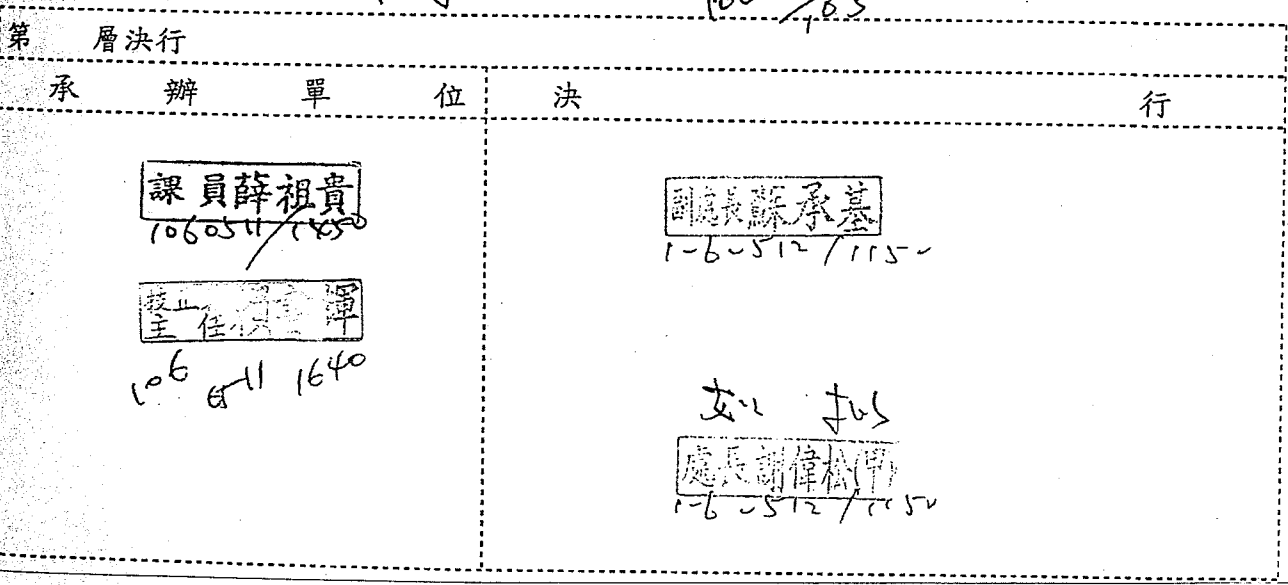 第 層決行
承辦單位 決行
課員薛祖貴
1060511/1450
技正
主任 輝
106 511 1640
副處長蘇承基
1060512/1150
如擬
處長謝偉松(甲)
1060512/1150